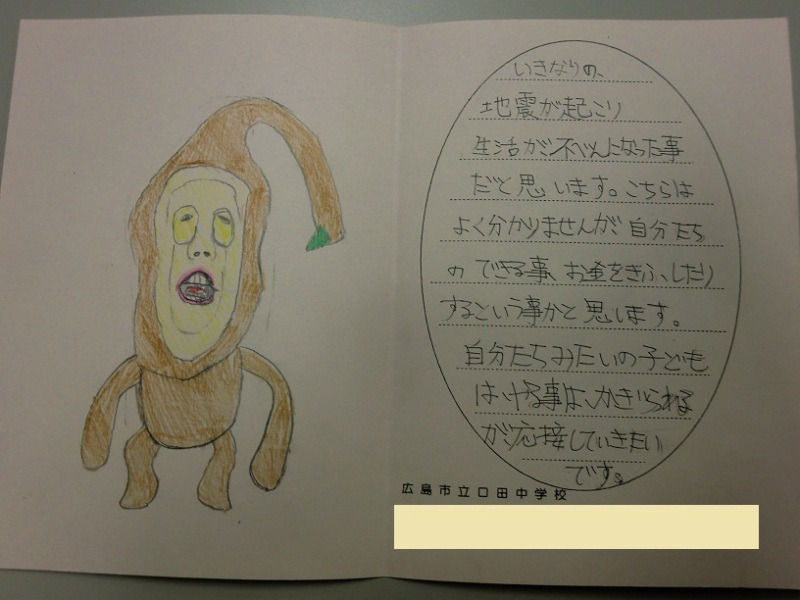 いきなりの、
地震が起こり
生活が不べんになった事
だと思います。こちらは
よく分かりませんが自分たち
のできる事、お金をきふしたり
するという事かと思います。
自分たちみたいの子ども
は、ける事は、かぎられる
が応接していきたい
です。
広島市立口田中学校